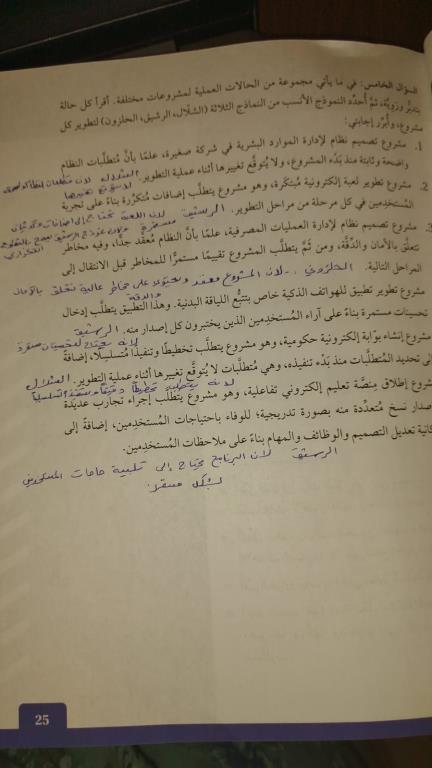 السؤال الخامس: في ما يأتي مجموعة من الحالات العملية لمشروعات مختلفة. أقرأ كل حالة
بتدبُّر ورويَّة، ثمَّ أُحدِّد النموذج الأنسب من النماذج الثلاثة (الشلّال، الرشيق، الحلزون) لتطوير كل
مشروع، وأُبرِّر إجابتي:
1. مشروع تصميم نظام لإدارة الموارد البشرية في شركة صغيرة، علمًا بأنَّ مُتطلَّبات النظام
واضحة وثابتة منذ بَدْء المشروع، ولا يُتوقَّع تغييرها أثناء عملية التطوير. الشلال لان متطلبات
لا يتوقع تغييرها
2. مشروع تطوير لعبة إلكترونية مُبتكَرة، وهو مشروع يتطلَّب إضافات مُتكرِّرة بناءً على تجربة
المُستخدِمين في كل مرحلة من مراحل التطوير. الرشيق لان اللعبة تحتاج إلى اضافات
3. مشروع تصميم نظام لإدارة العمليات المصرفية، علمًا بأنَّ النظام مُعقَّد جدًّا، وفيه مخاطر
تتعلَّق بالأمان والدِّقَّة، ومن ثمَّ يتطلَّب المشروع تقييمًا مستمرًّا للمخاطر قبل الانتقال إلى
المراحل التالية. الحلزوني - لان المشروع معقد ويحتوي على مخاطر عالية تتعلق بالأمان
والدقة
مشروع تطوير تطبيق للهواتف الذكية خاص بتتبُّع اللياقة البدنية. وهذا التطبيق يتطلَّب إدخال
تحسينات مستمرة بناءً على آراء المُستخدِمين الذين يختبرون كل إصدار منه. الرشيق
لانه يحتاج لتحسينات
مشروع إنشاء بوّابة إلكترونية حكومية، وهو مشروع يتطلَّب تخطيطًا وتنفيذًا مُتسلسِلًا، إضافةً
إلى تحديد المُتطلَّبات منذ بَدْء تنفيذه، وهي مُتطلَّبات لا يُتوقَّع تغييرها أثناء عملية التطوير. الشلال
لانه يتطلب تخطيطا
شروع إطلاق مِنصَّة تعليم إلكتروني تفاعلية، وهو مشروع يتطلَّب إجراء تجارب عديدة
إصدار نسخ مُتعدِّدة منه بصورة تدريجية؛ للوفاء باحتياجات المُستخدِمين، إضافةً إلى
كانية تعديل التصميم والوظائف والمهام بناءً على ملاحظات المُستخدِمين.
الرشيق لان البرنامج يحتاج إلى تلبية حاجات المستخدمين
بشكل
25